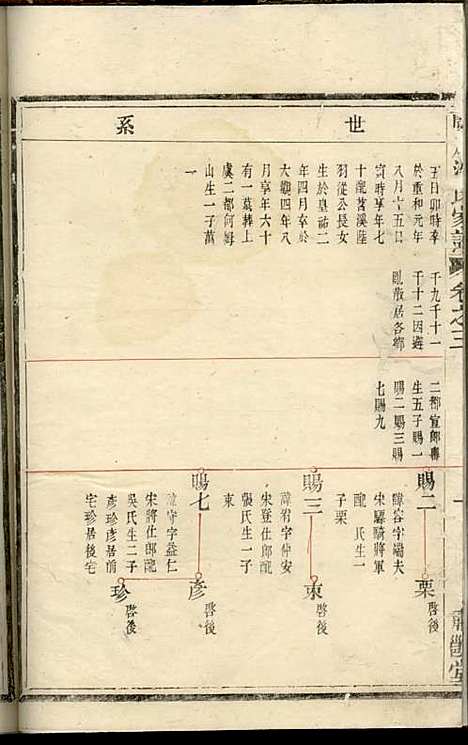 世系
五日卯時卒
於重和元年
八月十五日
寅時享年七
十配茗溪陸
羽從公長女
生於皇祐二
年四月卒於
大觀四年八
月享年六十
有一墓葬上
虞二都何姆
山生一子萬
一
千九千十一
千十二因避
亂散居各鄉
二都宣郎壽
生五子賜一
賜二賜三賜
七賜九
賜二
諱容字端夫
宋驃騎將軍
配 氏生一
子栗
栗
啓後
賜三
諱宥字仲安
宋登仕郎配
張氏生一子
東
東
啓後
賜七
諱守字益仁
宋將仕郎配
吳氏生二子
彥珍彥居前
宅珍居後宅
彥
啓後
珍
啓後
氏家譜
卷之三
堂